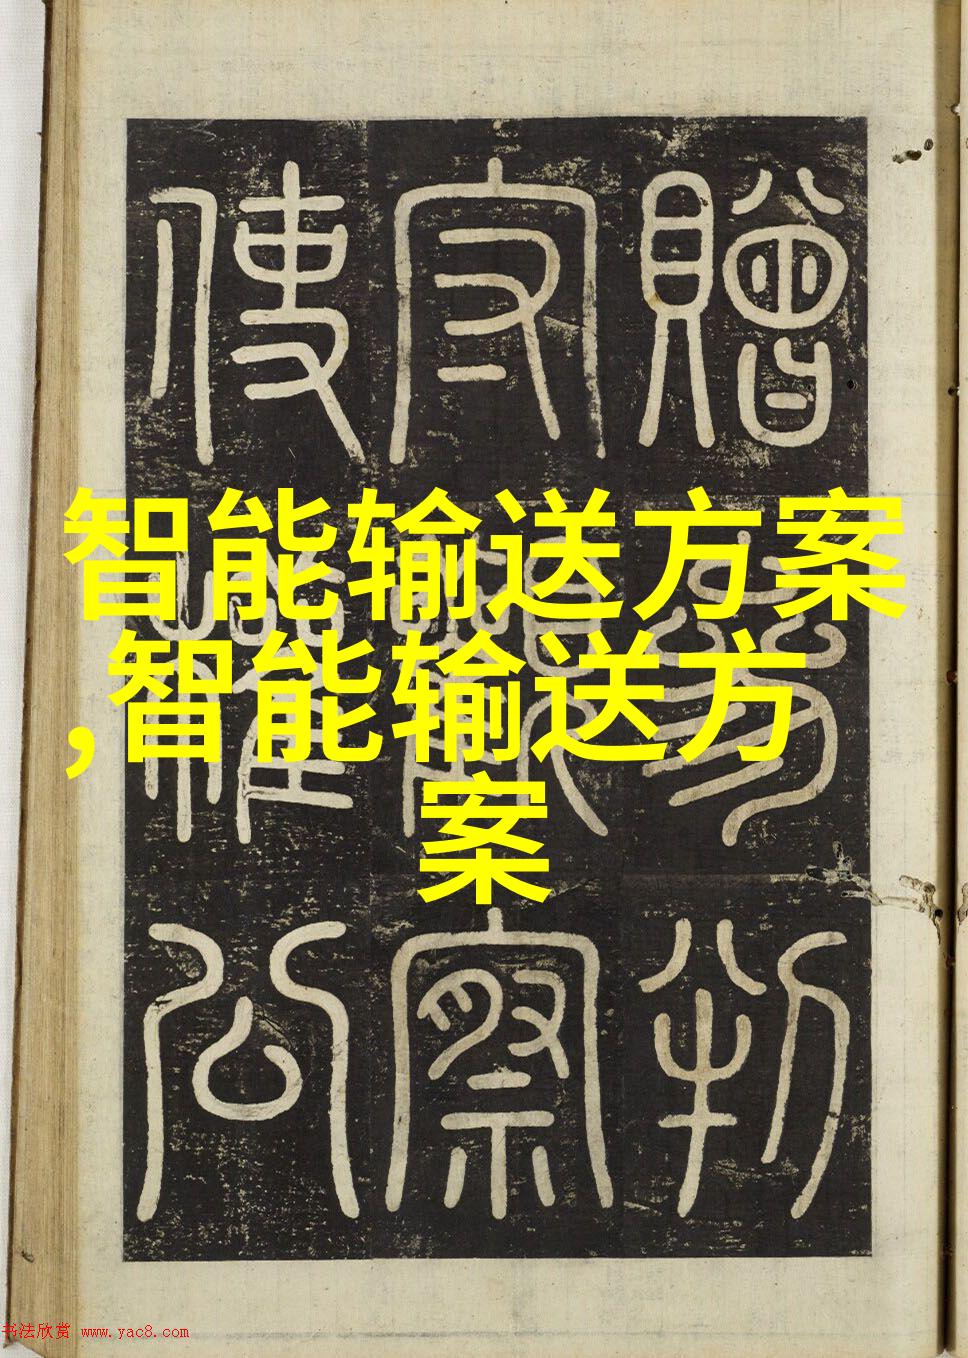 贈判
觀察
使權公
智能输送方案
,智能输送方
案
书法欣赏 www.yac8.com